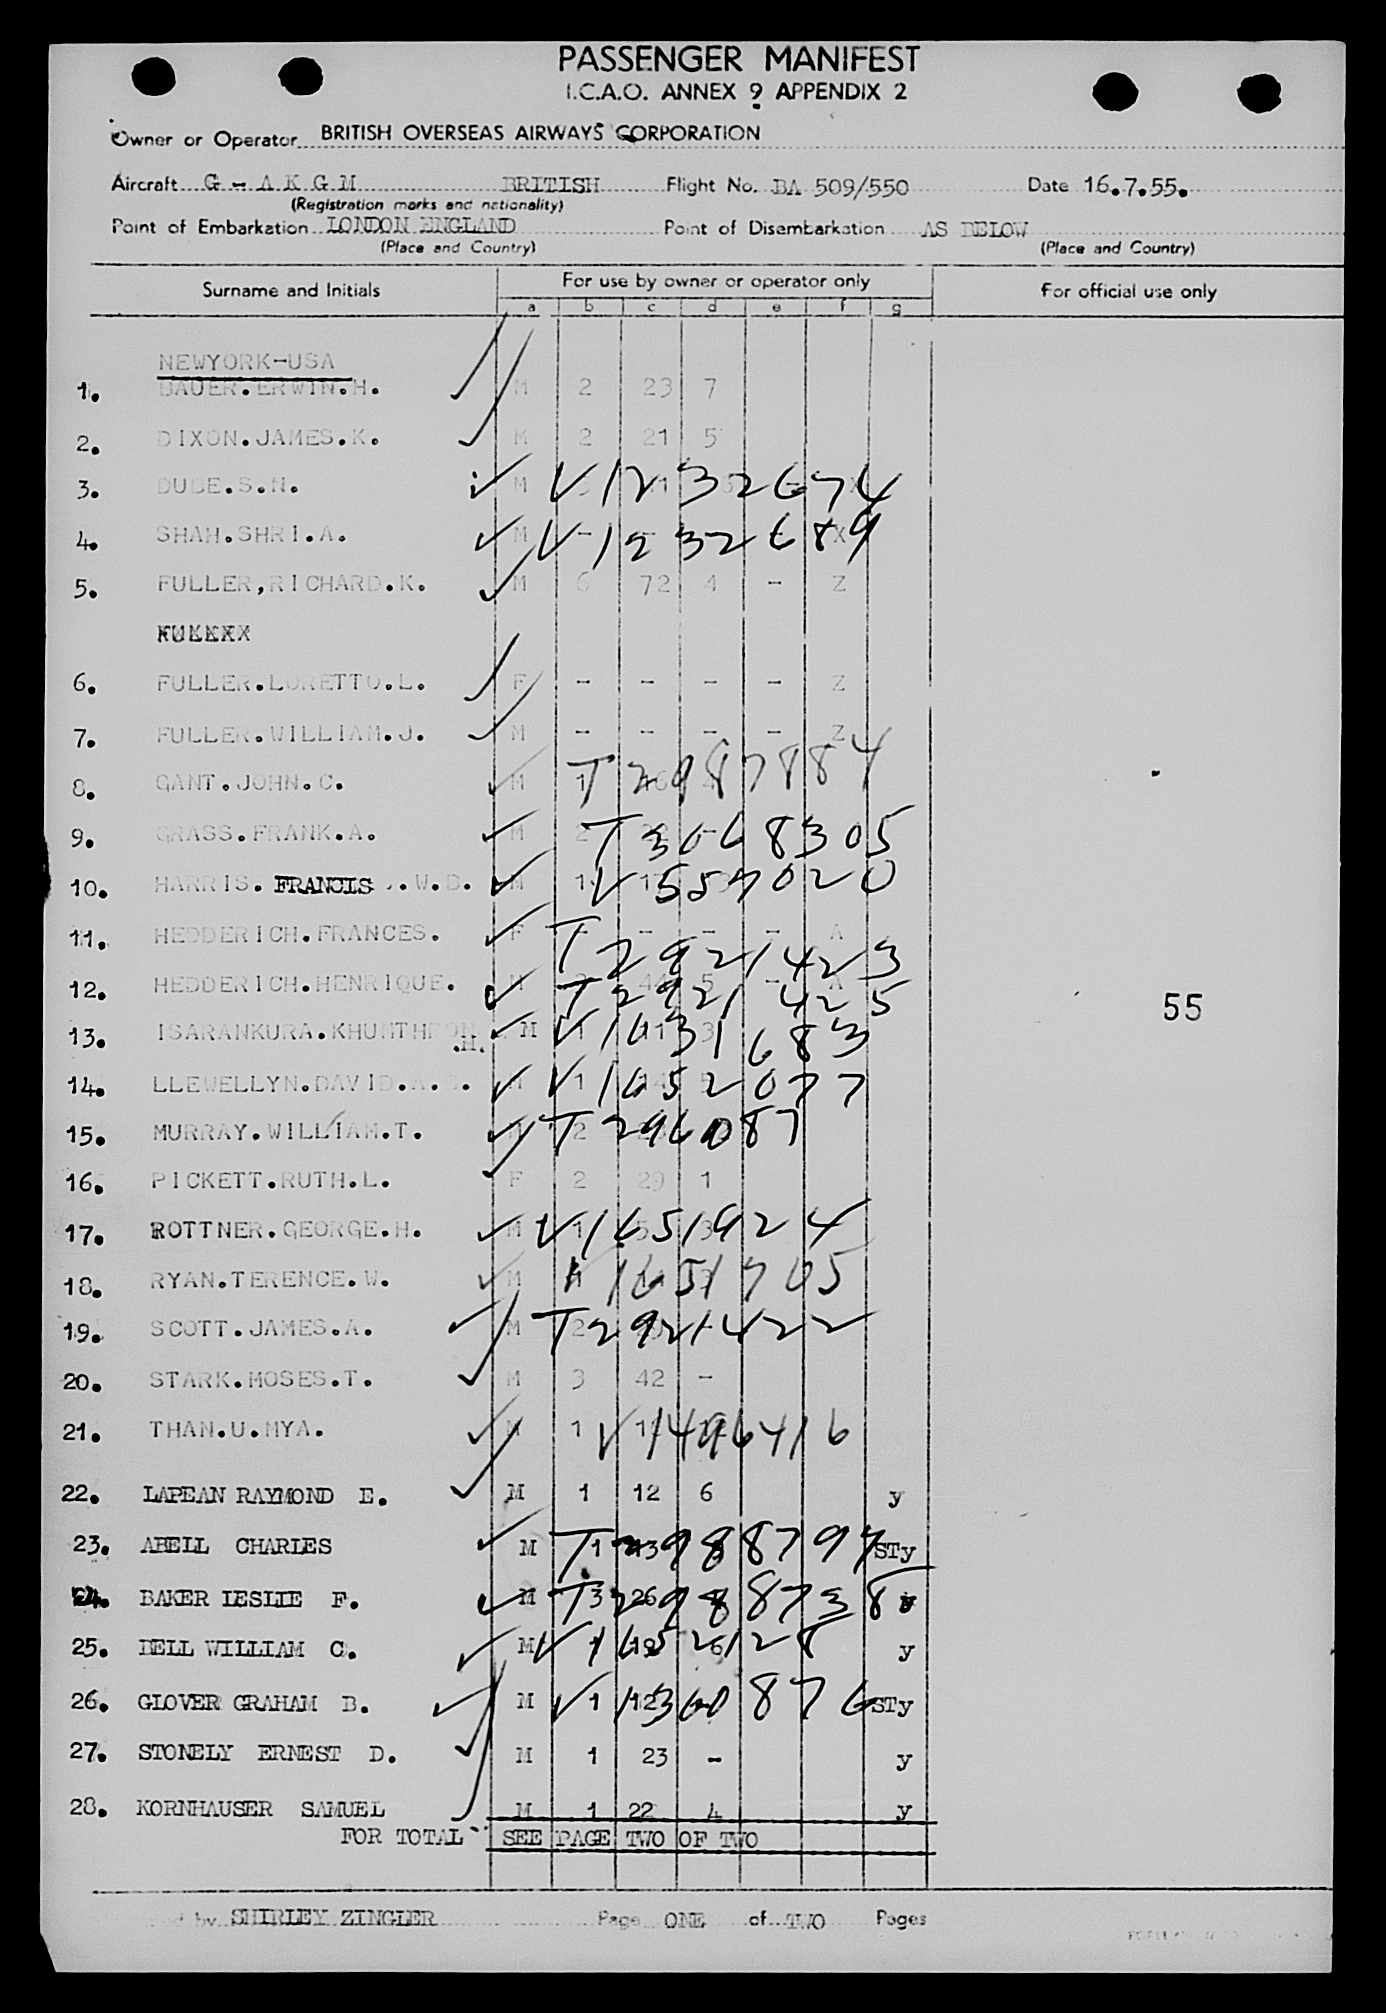 PASSENGER MANIFEST
I.C.A.O. ANNEX 9 APPENDIX 2
Owner or Operator BRITISH OVERSEAS AIRWAYS CORPORATION
Aircraft G-AKGM BRITISH Flight No. BA 509/550 Date 16.7.55.
(Registration marks and nationality)
Point of Embarkation LONDON ENGLAND Point of Disembarkation AS BELOW
(Place and Country) (Place and Country)
Surname and Initials For use by owner or operator only For official use only
a b c d e f g
NEWYORK-USA
1. BAUER.ERWIN.H. M 2 23 7
2. DIXON.JAMES.K. M 2 21 5
3. DUBE.S.N. M V1232674
4. SHAH.SHRI.A. M V1232689 X
5. FULLER,RICHARD.K. M 6 72 4 - Z
6. FULLER.LORETTO.L. F - - - - Z
7. FULLER.WILLIAM.J. M - - - - Z
8. GANT.JOHN.C. M 1 T2987884
9. GRASS.FRANK.A. M 2 T3068305
10. HARRIS. FRANCIS .W.D. M 1 V557020
11. HEDDERICH.FRANCES. F - - - - A T2921423
12. HEDDERICH.HENRIQUE. M 44 5 - A T2921425
13. ISARANKURA.KHUNTHRON .M. M 1 11 3 V1631683
14. LLEWELLYN.DAVID. M 1 V1652077
15. MURRAY.WILLIAM.T. M 2 T296087
16. PICKETT.RUTH.L. F 2 20 1
17. ROTTNER.GEORGE.H. M 1 V1651924
18. RYAN.TERENCE.W. M 1651705
19. SCOTT.JAMES.A. M 2 T2921422
20. STARK.MOSES.T. M 3 42 -
21. THAN.U.MYA. M 1 V1496416
22. LAPEAN RAYMOND E. M 1 12 6 y
23. ABELL CHARLES M 1 T2988797 STy
24. BAKER LESLIE F. M 3 26 T2988738 y
25. BELL WILLIAM C. M 1 6 V1652128 y
26. GLOVER GRAHAM B. M 1 12 V1360876 STy
27. STONELY ERNEST D. M 1 23 - y
28. KORNHAUSER SAMUEL M 1 22 4 y
FOR TOTAL SEE PAGE TWO OF TWO
55
by SHIRLEY ZINGLER Page ONE of TWO Pages